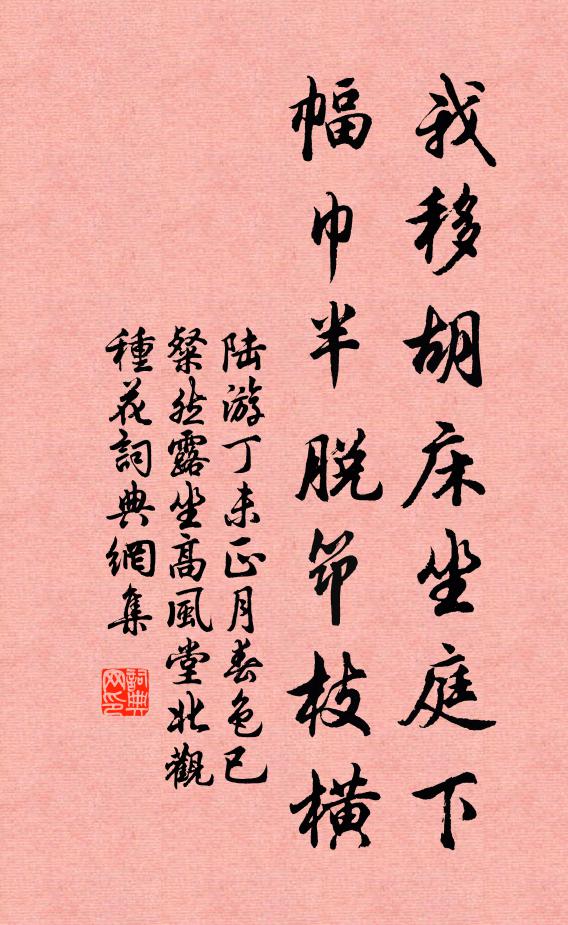 我移胡床坐庭下
幅巾半脫筇枝橫
陆游丁未正月春色已
粲然露坐高風堂北觀
種花詞典網集
詞典
网印